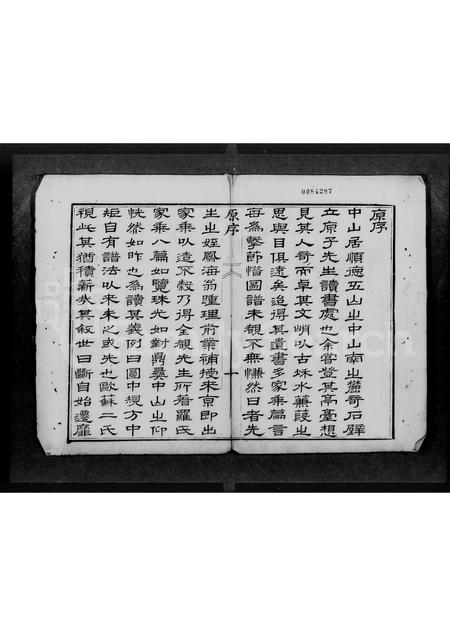 0084287
原序
中山居順德五山之中山南之麓奇石壁
立原子先生讀書處也余嘗登其亭臺想
見其人奇而卓其文峭以古秌水蒹葭之
思與目俱遠矣追得其遺書多家乘篇言
每為擊節惜圖譜未覩不無慊然日者先
原序
一
生之姪鳳海翁踵理前業補授來京即出
家乘以造不穀乃得全覩先生所著羅氏
家乘八篇如覽珠光如對鼎彞中山之仰
恍然如昨也為讀其義例曰圖中規方中
矩自有譜法以來未之或先也歐蘇二氏
視此其猶積薪哉其叙世曰斷自始遷靡